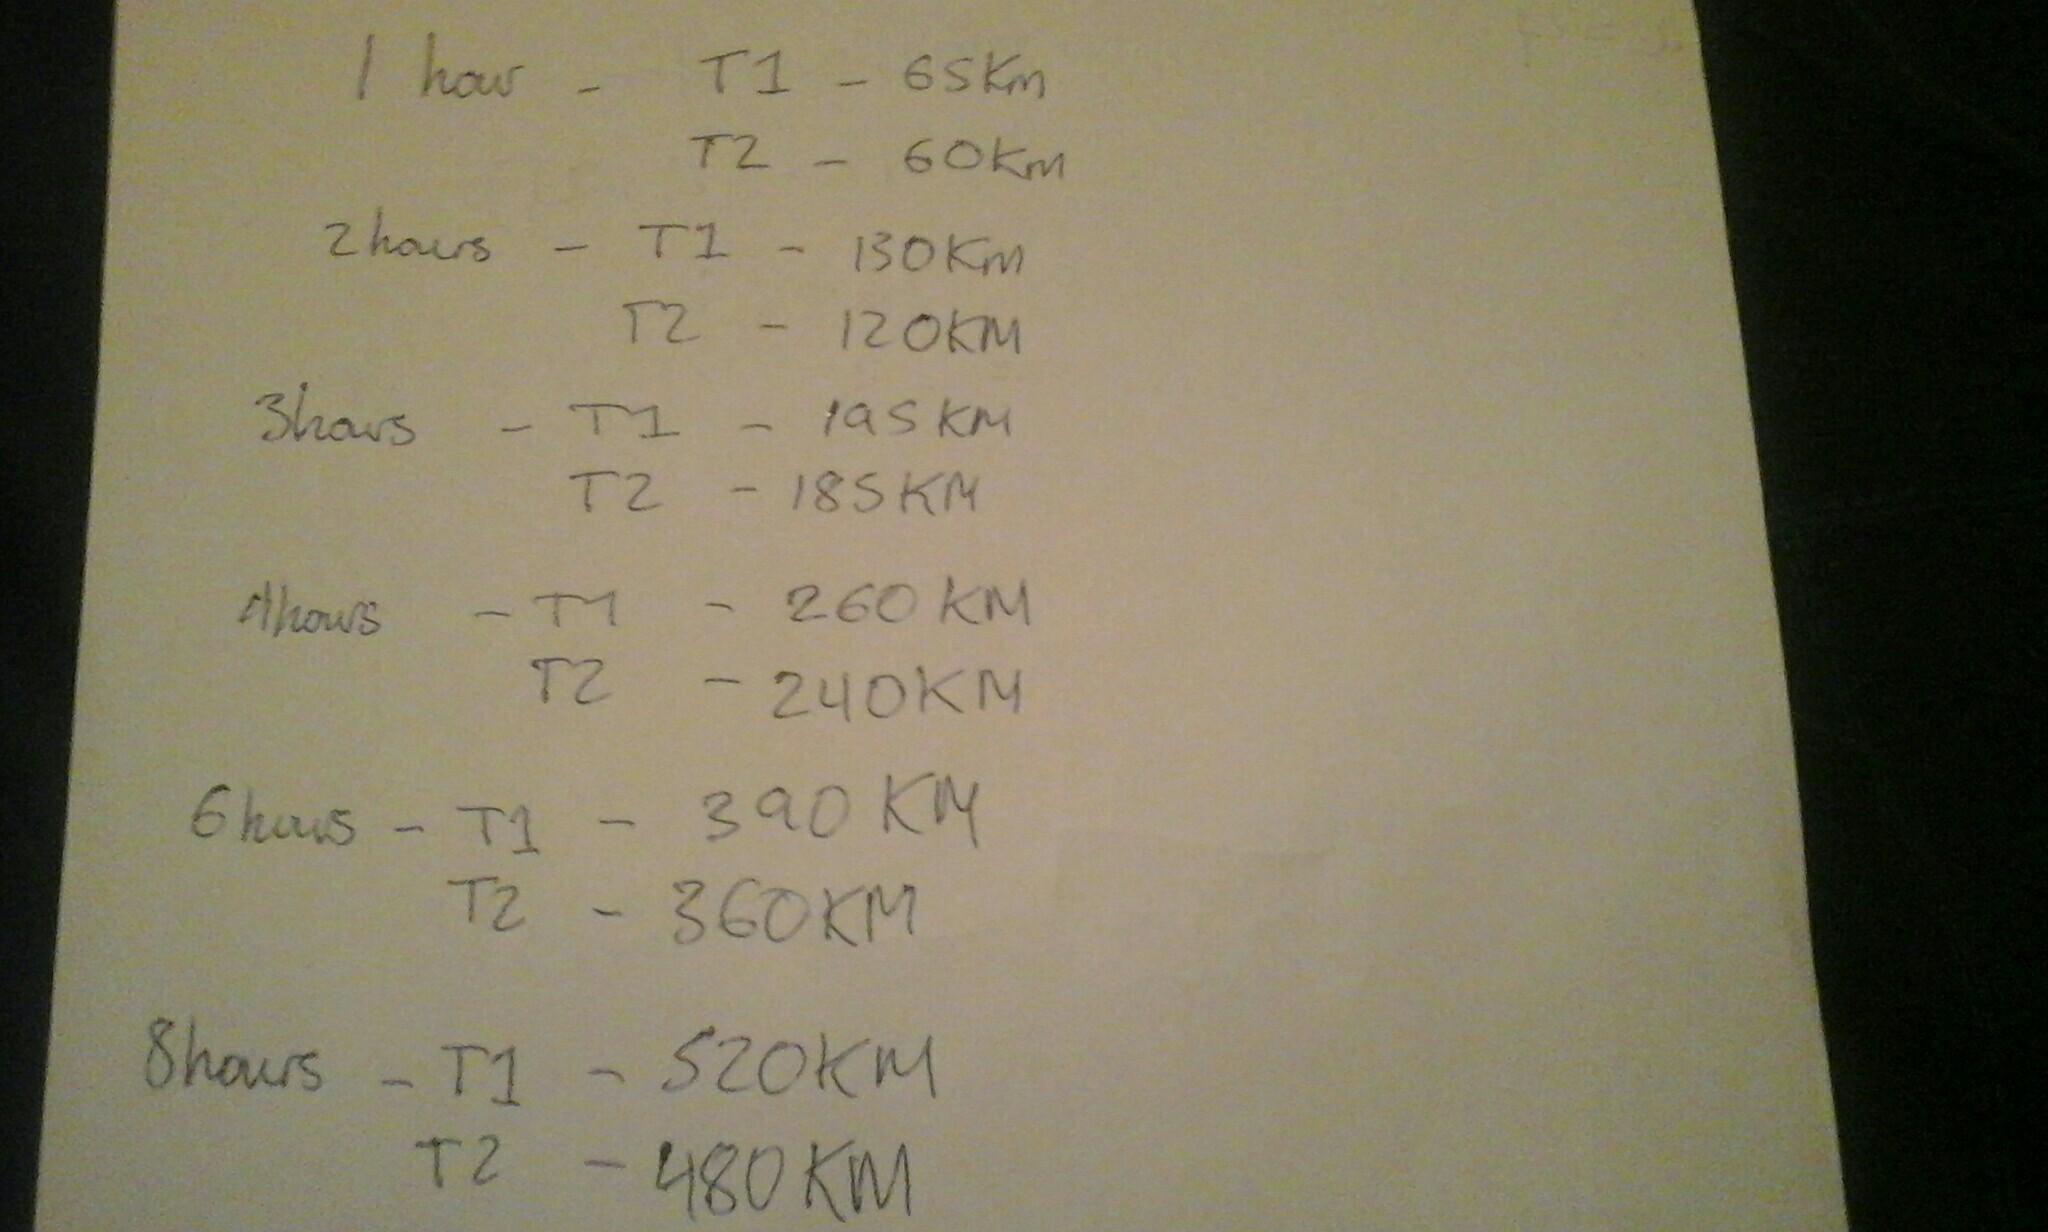 1 hour - T1 - 65Km
T2 - 60Km
2hours - T1 - 130Km
T2 - 120KM
3hours - T1 - 195KM
T2 - 185KM
4hours - T1 - 260KM
T2 - 240KM
6hours - T1 - 390KM
T2 - 360KM
8hours - T1 - 520KM
T2 - 480KM